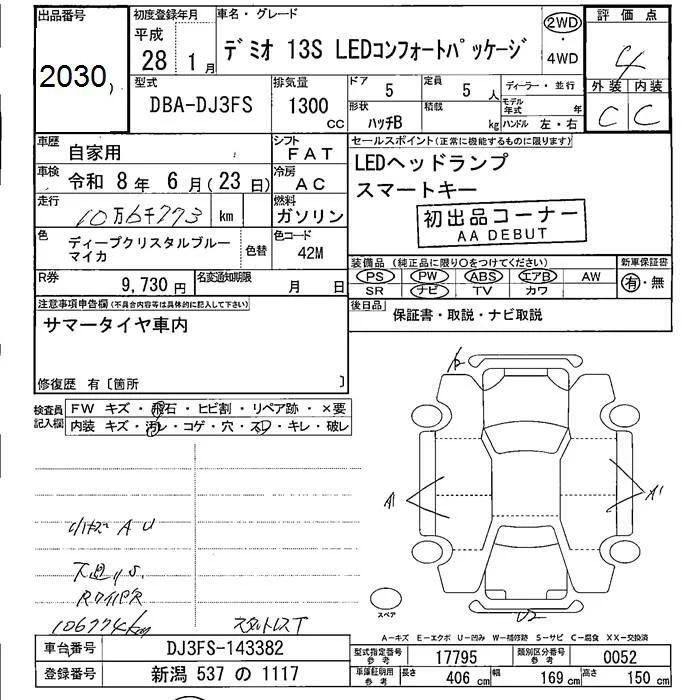 出品番号 初度登録年月 車名・グレード 評価点
2030 平成 28 1月 デミオ 13S LEDコンフォートパッケージ 2WD ・ 4WD 4
型式 排気量 ドア 定員 ディーラー・並行 外装 内装
DBA-DJ3FS 1300 CC 5 5 人 モデル年式 年 C C
形状 積載
ハッチB kg ハンドル 左・右
車歴 自家用 シフト FAT セールスポイント(正常に機能するものに限ります)
車検 令和 8年 6月(23日) 冷房 AC LEDヘッドランプ
走行 10万6千773 km 燃料 ガソリン スマートキー
初出品コーナー
AA DEBUT
色 ディープクリスタルブルーマイカ 色替 色コード 42M
装備品(純正品に限り○をつけてください) 新車保証書
PS PW ABS エアB AW 有・無
SR ナビ TV カワ
R券 9,730円 名変通知期限 月 日
後日品 保証書・取説・ナビ取説
注意事項申告欄(不具合内容等は具体的に記入して下さい)
サマータイヤ車内
修復歴 有〔箇所 〕
検査員記入欄 FW キズ・飛石・ヒビ割・リペア跡・×要
内装 キズ・汚レ・コゲ・穴・スレ・キレ・破レ
A1 A1
A U
下廻りS
RワイパR
106774km スタットレスT
U2
スペア
A-キズ E-エクボ U-凹み W-補修跡 S-サビ C-腐食 XX-交換済
車台番号 DJ3FS-143382 型式指定番号 参考 17795 類別区分番号 参考 0052
登録番号 新潟 537 の 1117 車庫証明用 参考 長さ 406 cm 幅 169 cm 高さ 150 cm